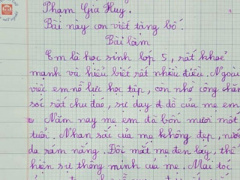 Phạm Gia Huy.
Bài này con viết tặng bố
Bài làm
Em là học sinh lớp 5, rất khoẻ
mạnh và hiểu biết rất nhiều điều. Ngoài
việc em nỗ lực học tập, còn nhờ công chăm
sóc rất chu đáo, sự dạy dỗ của mẹ em
Năm nay mẹ em đã bốn mươi một
tuổi. Nhan sắc của mẹ không đẹp, nước
da rám nắng. Đôi mắt mẹ đen láy, thể
hiện sự thông minh của mẹ. Mái tóc